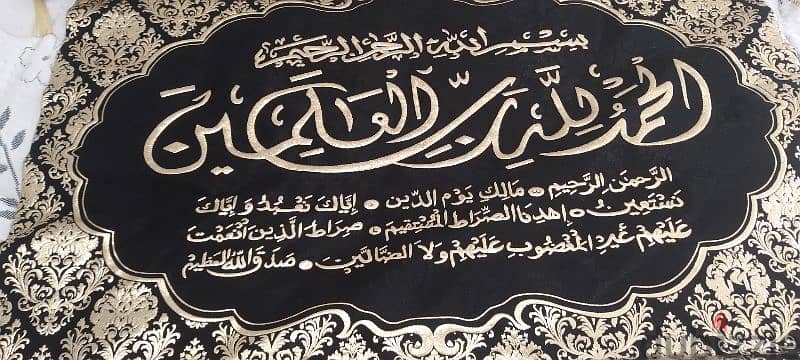 بسم الله الرحمن الرحيم
الحمد لله رب العالمين
الرحمن الرحيم • مالك يوم الدين • إياك نعبد وإياك
نستعين • اهدنا الصراط المستقيم • صراط الذين أنعمت
عليهم غير المغضوب عليهم ولا الضالين • صدق الله العظيم